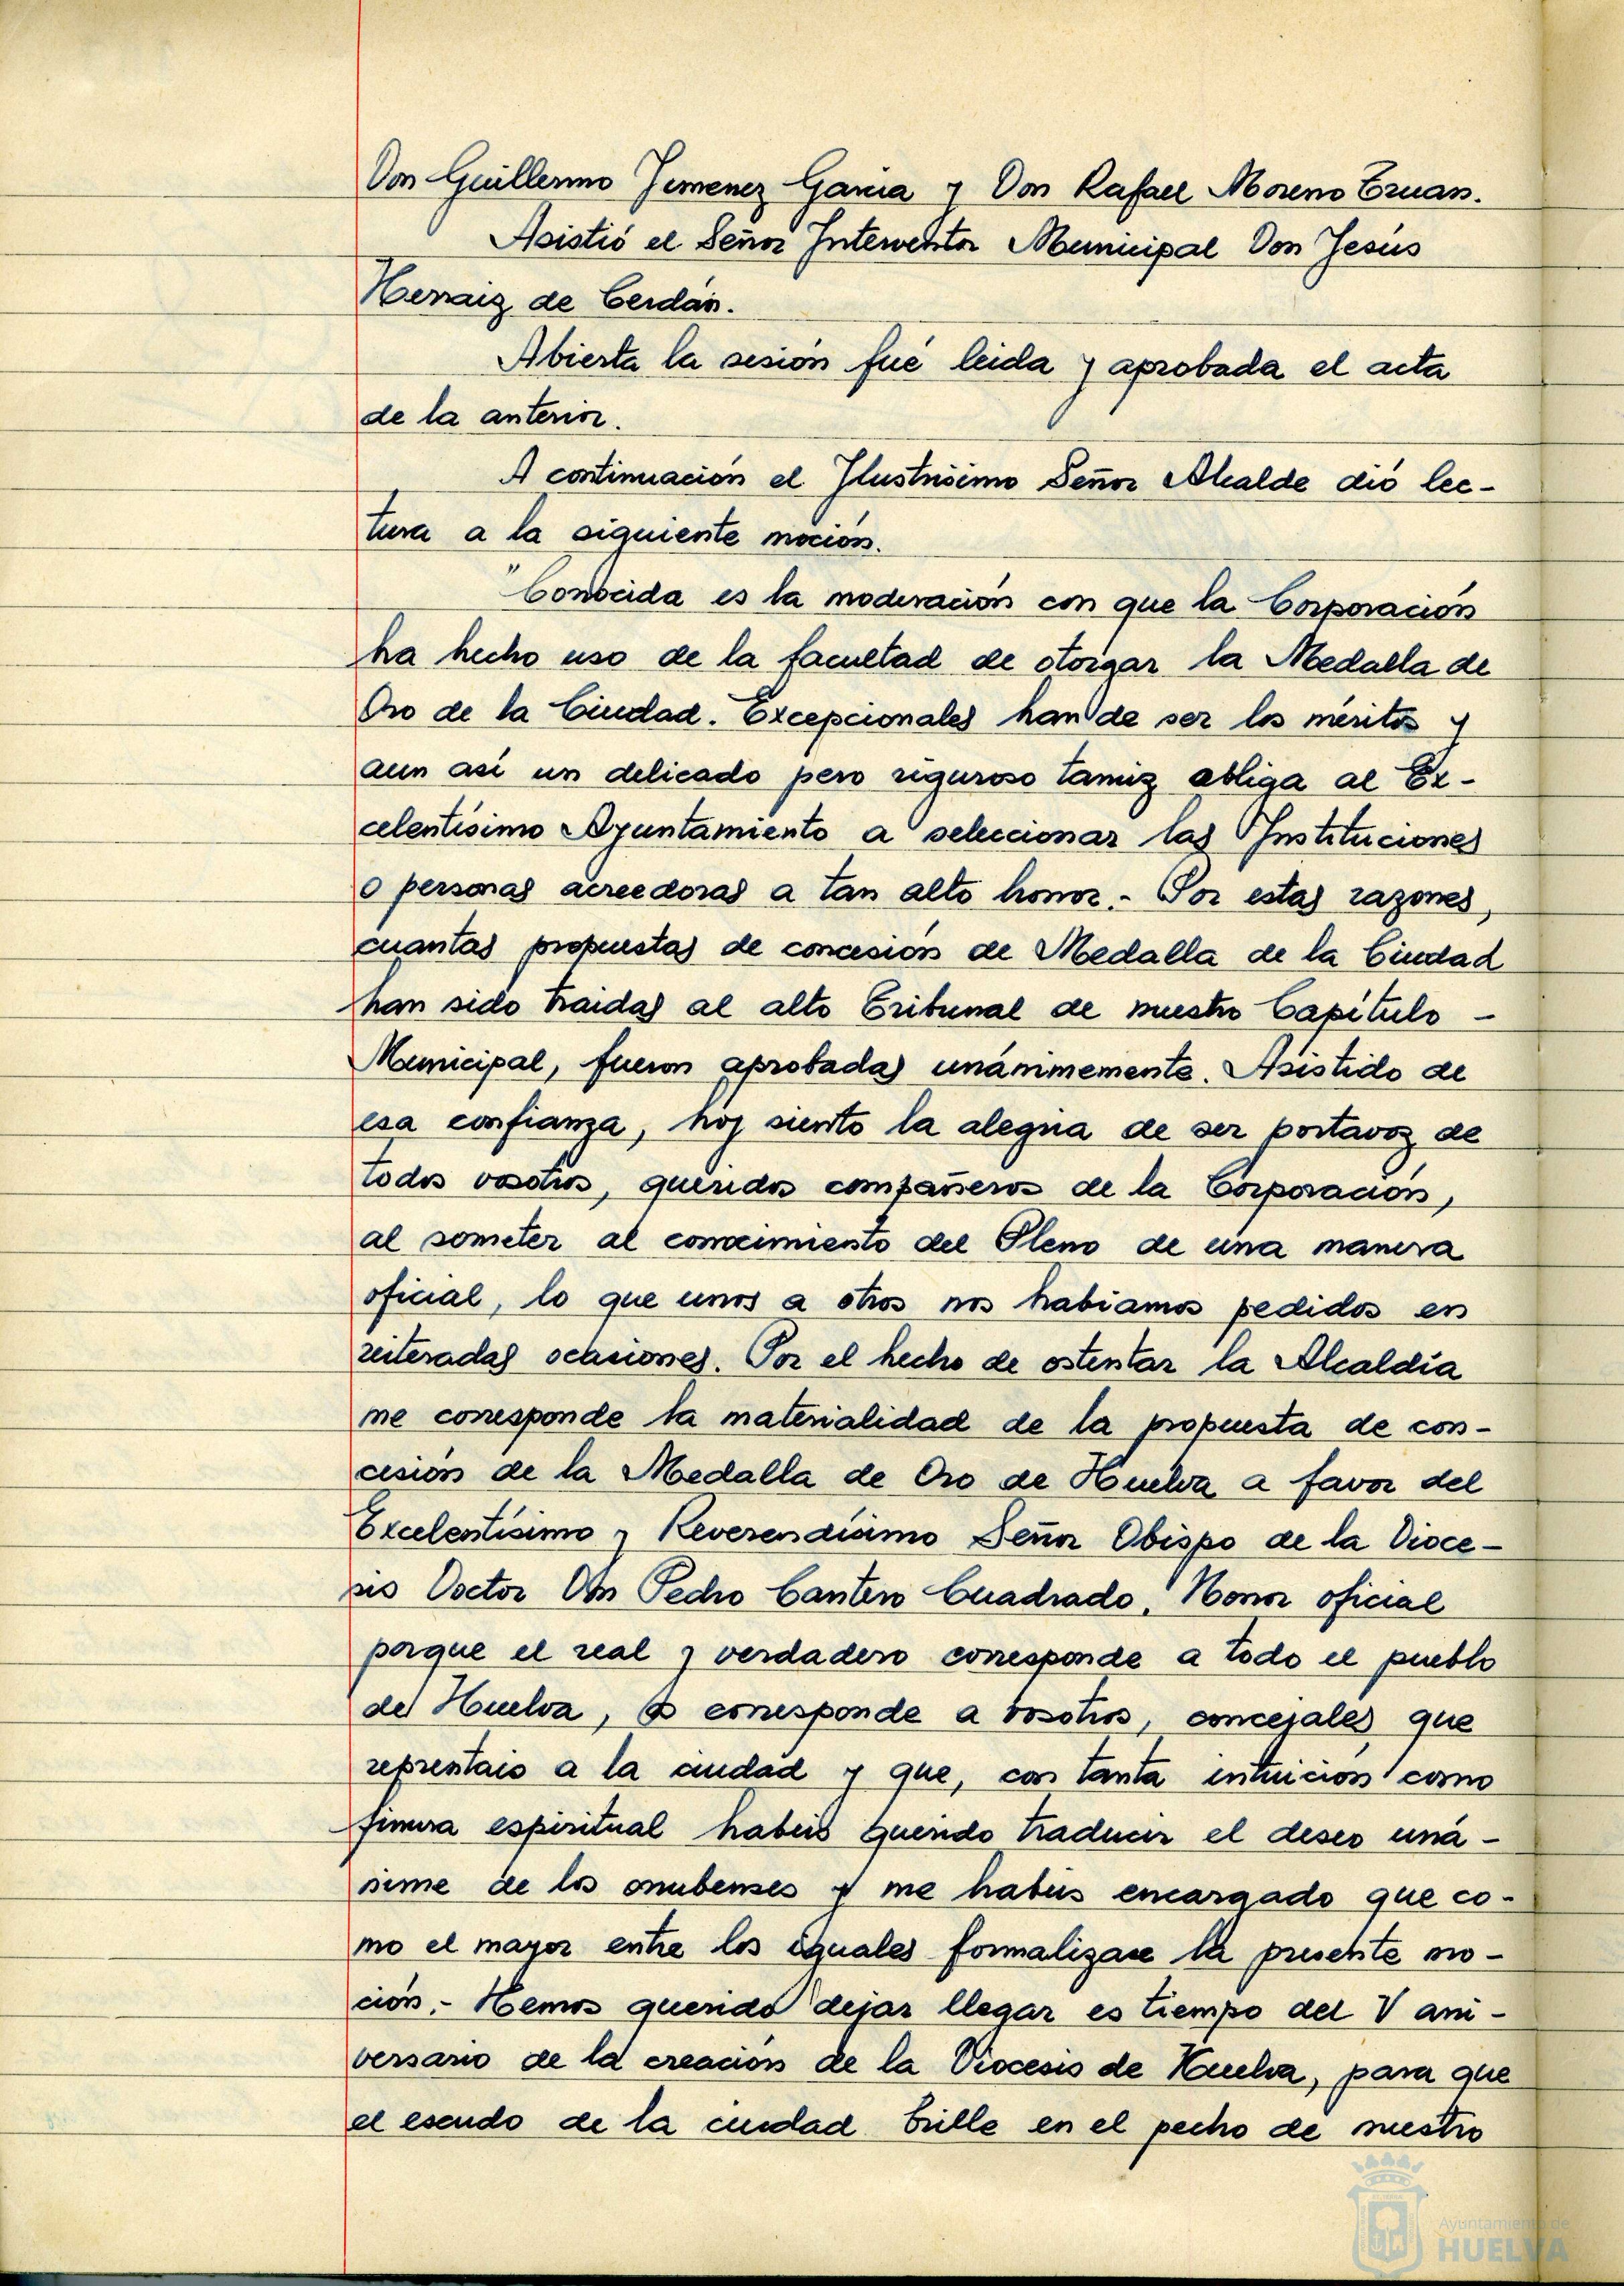 Don Guillermo Jimenez Garcia y Don Rafael Moreno Truan.
Asistió el Señor Interventor Municipal Don Jesús
Hernaiz de Cerdán.
Abierta la sesión fué leida y aprobada el acta
de la anterior.
A continuación el Ilustrísimo Señor Alcalde dió lec-
tura a la siguiente moción.
"Conocida es la moderación con que la Corporación
ha hecho uso de la facultad de otorgar la Medalla de
Oro de la Ciudad. Excepcionales han de ser los méritos y
aun así un delicado pero riguroso tamiz obliga al Ex-
celentísimo Ayuntamiento a seleccionar las Instituciones
o personas acreedoras a tan alto honor.- Por estas razones,
cuantas propuestas de concesión de Medalla de la Ciudad
han sido traidas al alto Tribunal de nuestro Capítulo -
Municipal, fueron aprobadas unánimemente. Asistido de
esa confianza, hoy siento la alegria de ser portavoz de
todos vosotros, queridos compañeros de la Corporación,
al someter al conocimiento del Pleno de una manera
oficial, lo que unos a otros nos habiamos pedidos en
reiteradas ocasiones. Por el hecho de ostentar la Alcaldía
me corresponde la materialidad de la propuesta de con-
cesión de la Medalla de Oro de Huelva a favor del
Excelentísimo y Reverendísimo Señor Obispo de la Dioce-
sis Doctor Don Pedro Cantero Cuadrado. Honor oficial
porque el real y verdadero corresponde a todo el pueblo
de Huelva, corresponde a vosotros, concejales que
reprentais a la ciudad y que, con tanta intuición como
finura espiritual habeis querido traducir el deseo uná-
nime de los onubenses y me habeis encargado que co-
mo el mayor entre los iguales formalizase la presente mo-
ción.- Hemos querido dejar llegar es tiempo del V ani-
versario de la creación de la Diocesis de Huelva, para que
el escudo de la ciudad brille en el pecho de nuestro
Ayuntamiento de
HUELVA